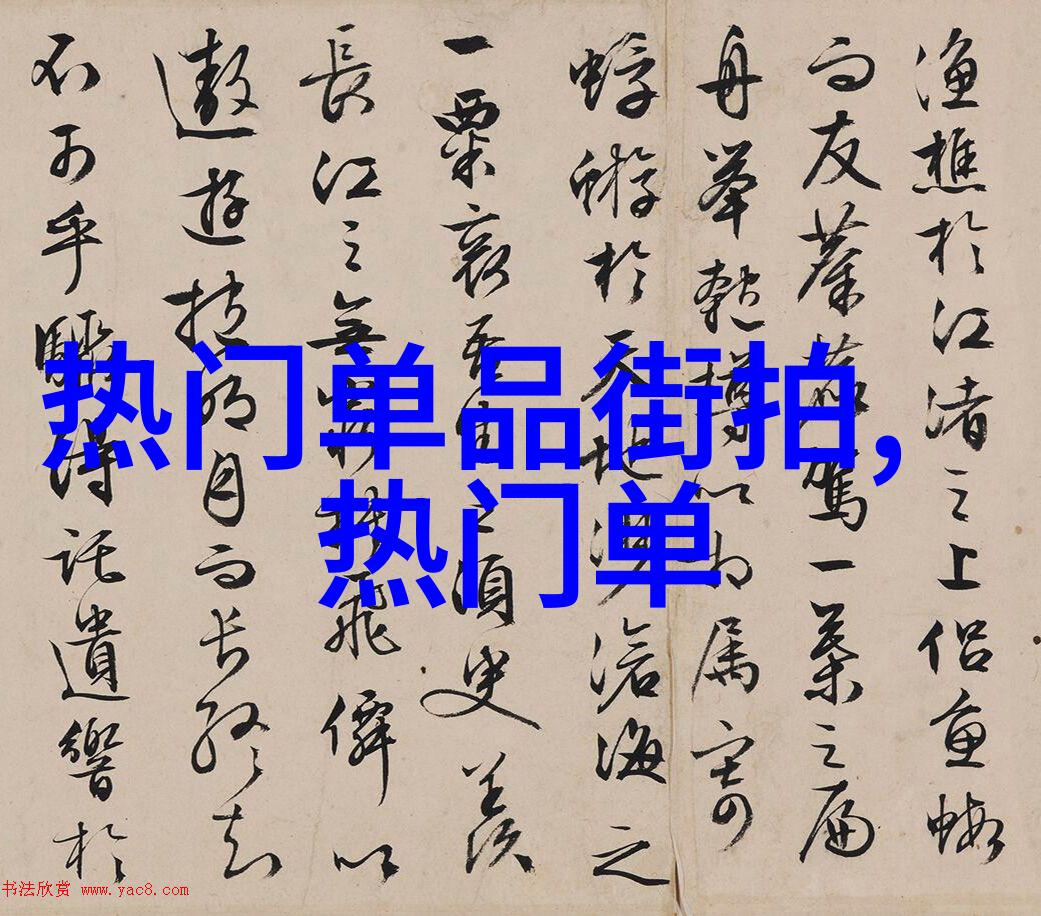 漁樵於江渚之上侶魚蝦
而友麋鹿駕一葉之扁
舟舉匏樽以相属寄
蜉蝣於天地渺滄海之
一粟哀吾生之須臾羨
長江之無窮挾飛僊以
遨遊抱明月而長終知
不可乎驟得託遺響於
热门单品街拍,
热门单
书法欣赏 www.yac8.com